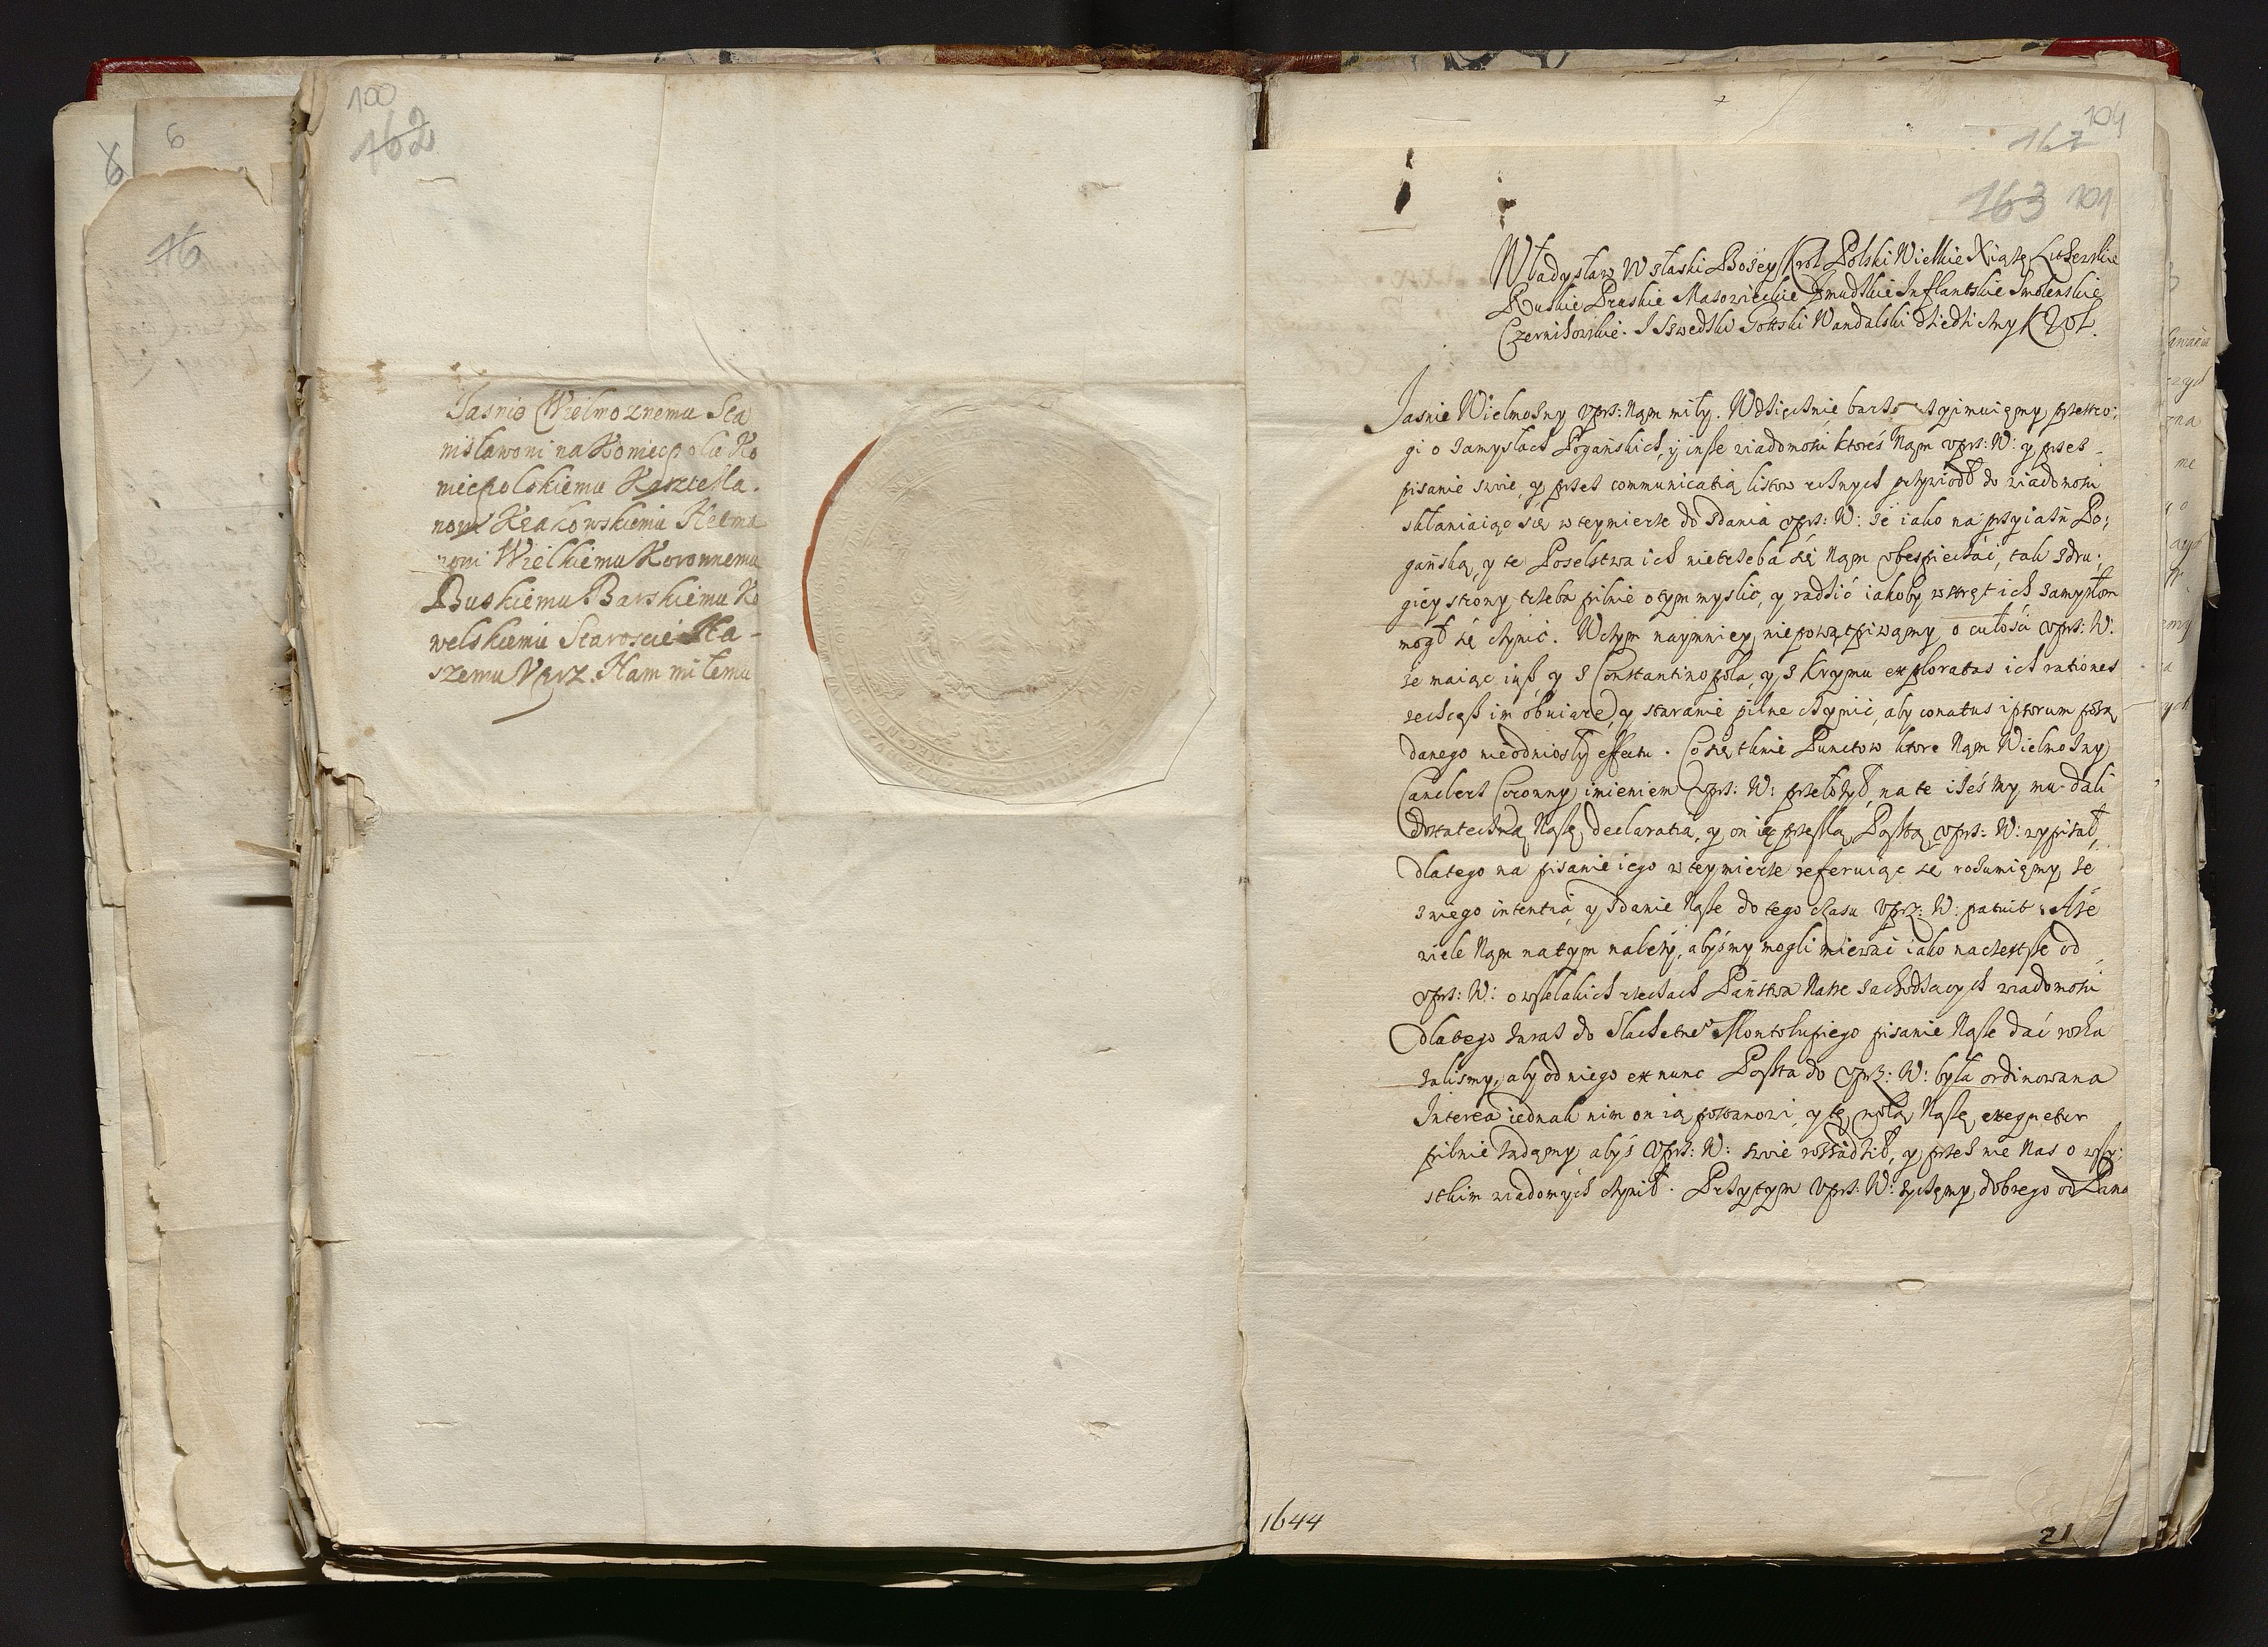 100
162
6
16
Jasnie Wielmoznemu Sta
nisławowi na Koniecpolu Ko
niecpolskiemu Kasztella.
nowi Krakowskiemu Hetma
nowi Wielkiemu Koronnemu
Buskiemu Barskiemu Ko
welskiemu Staroscie Na-
szemu Vprz. Nam miłemu
104
162
163 101
Władysław IV z łaski Bożey Krol Polski Wielkie Xiążę Litewskie
Ruskie Pruskie Mazowieckie Zmudzkie Inflantskie Smolenskie
Czernihowskie. I Szwedzki Gottski Wandalski dziedziczny Krol.
Jasnie Wielmożny vprz: Nąm miły. Wdzięcznie barzo przyimuięmy przestro:
gi o zamysłach Pogańskich, y insze wiadomosci ktoreś Nąm vprz: W: y przez
pisanie swoie, y przez communicatią listow roznych przywiodł do wiadomosci
skłaniaiąc się w teymierze do zdania vprz: W: że iako na przyiaźń Po:
gańską, y te Poselstwa ich nietrzeba się Nąm vbespieczać, tak z dru:
giey strony trzeba pilnie o tym myslić, y radzić iakoby wstręt ich zamysłom
mogł się czynić. W czym naymniey niepowątpiwąmy o czułości vprz: W:
że maiąc iusz y z Constantinopola, y z Krymu exploratas ich rationes
zechcesz im obuiare, y staranie pilne czynić, aby conatus ipsorum pożą
danego nieodniosły effectu. Co się tknie Punctow ktore Nąm Wielmożny
Canclerz Coronny imieniem Vprz: W: przełożył, na te iżeśmy mu dali
dostateczną Naszę declaratią, y on ią przeszłą Posztą vprz: W: wypisał,
dlatego na pisanie iego w teymierze referuiąc się rozumięmy że
z niego intentia, y zdanie Nasze do tego czasu Vprz: W: patuit. Aże
wiele Nąm na tym należy, abyśmy mogli miewać iako naczestsze od
vprz: W: o wszelakich rzeczach Państwa Nasze zachodzących wiadomosci
dlatego zaraz do Slachetne° Montolupiego pisanie Nasze dać roska
zalismy, aby od niego ex nunc Poszta do vprz: W: była ordinowana
Interea iednak nim on ią postanowi, y tę wolą Naszę exequetur
pilnie żądąmy abyś Vprz: W: swoie rozsadził, y przez nie Nas o wszy:
stkim wiadomych czynił. Przytym Vprz: W: życzęmy dobrego od Pana
1644
21